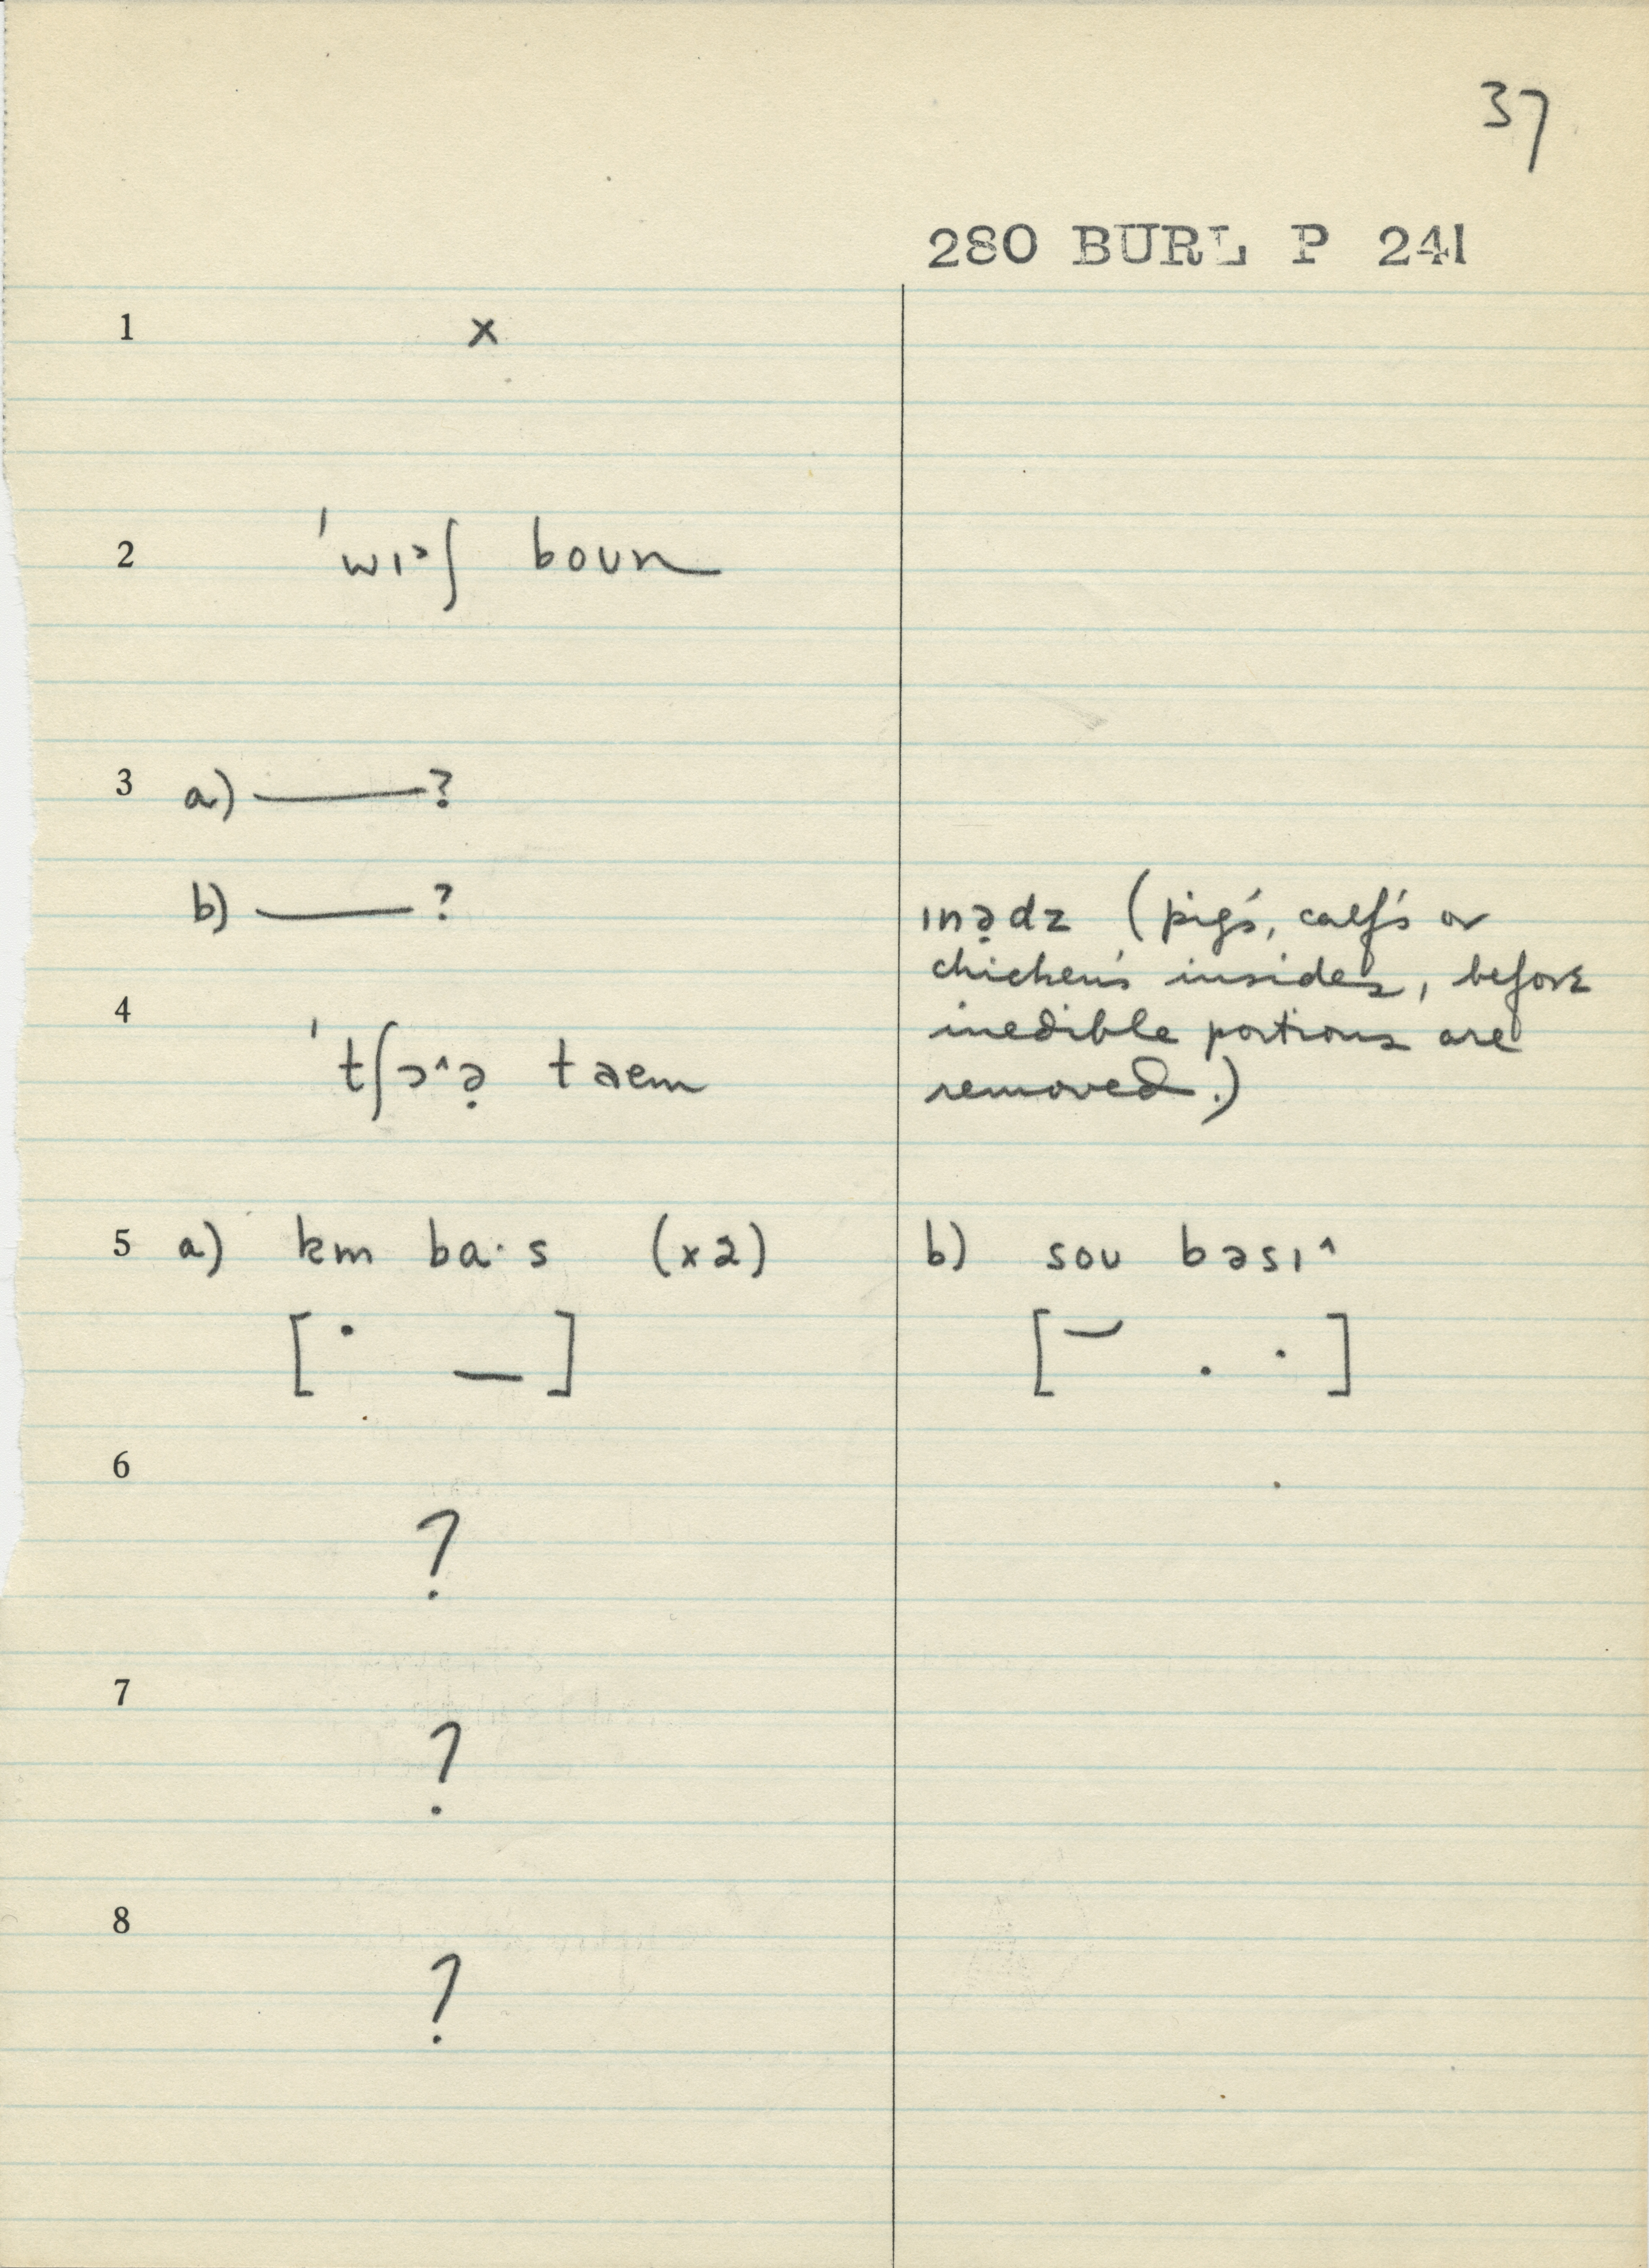 37
280 BURL P 241
1 x
2 ˈwɪ˃ʃ boun
3 a) ——— ?
b) ——— ?
ɪnə̣dz (pig's, calf's or
chicken's insides, before
inedible portions are
removed.)
4 ˈtʃɔ^ə̣ taem
5 a) km ba·s (x2) b) sou bəsɪ^
6 ?
7 ?
8 ?